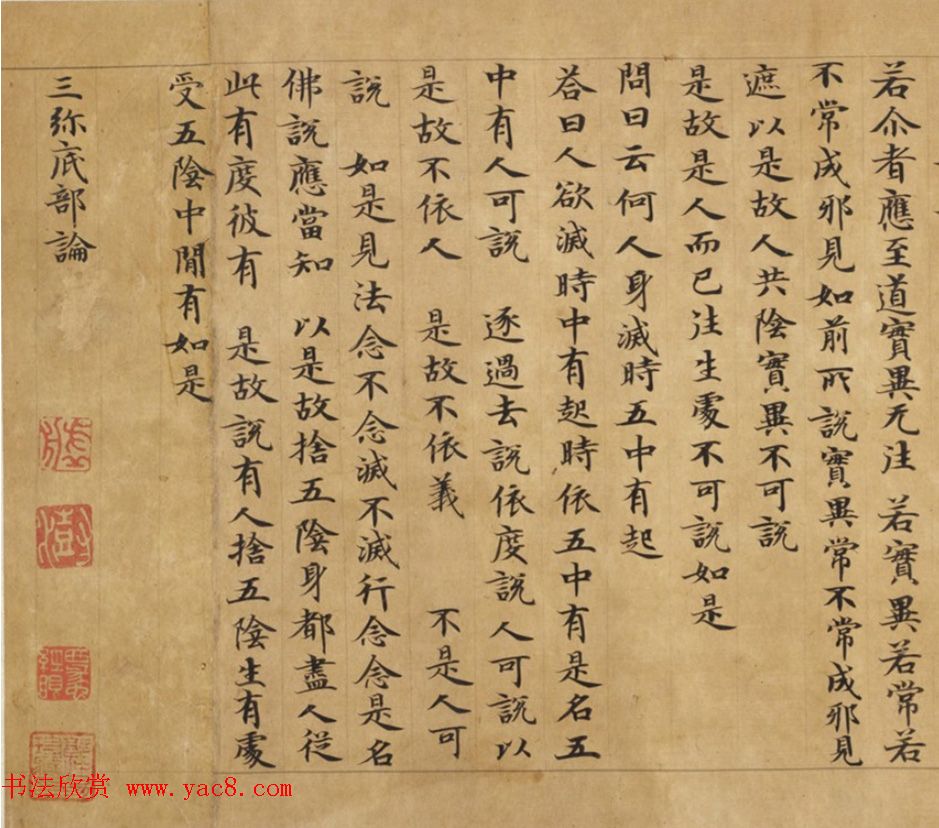 若尒者應至道實異无注　若實異若常若
不常成邪見如前所說實異常不常成邪見
遮以是故人共陰實異不可說
是故是人而已注生處不可說如是
問曰云何人身滅時五中有起
荅曰人欲滅時中有起時依五中有是名五
中有人可說　逐過去說依度說人可說以
是故不依人　是故不依義　不是人可
說　如是見法念不念滅不滅行念念是名
佛說應當知　以是故捨五陰身都盡人從
此有度彼有　是故說有人捨五陰生有處
受五陰中閒有如是
三弥底部論
书法欣赏 www.yac8.com